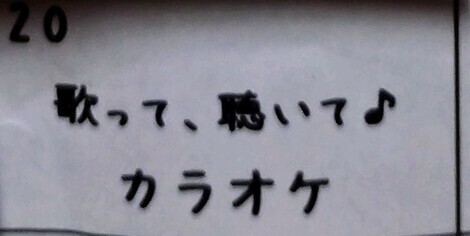 20
歌って、聴いて♪
カラオケ